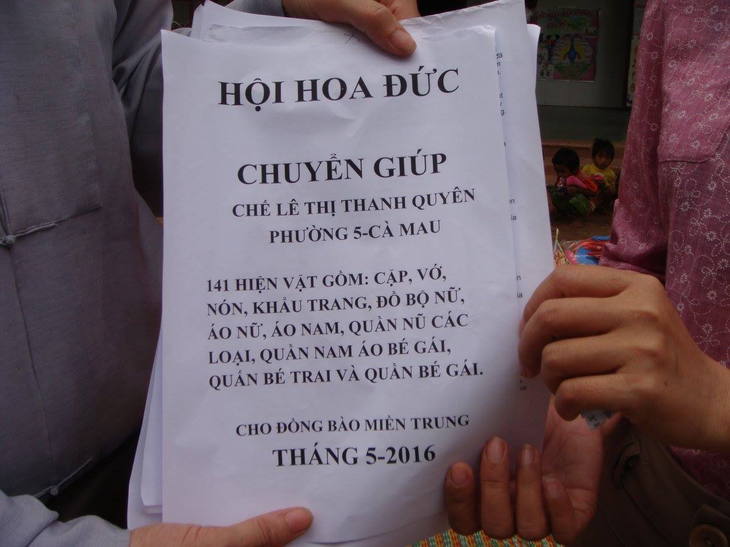 HỘI HOA ĐỨC
CHUYỂN GIÚP
CHÉ LÊ THỊ THANH QUYÊN
PHƯỜNG 5-CÀ MAU
141 HIỆN VẬT GỒM: CẶP, VỚ,
NÓN, KHẨU TRANG, ĐỒ BỘ NỮ,
ÁO NỮ, ÁO NAM, QUẦN NŨ CÁC
LOẠI, QUẦN NAM ÁO BÉ GÁI,
QUẤN BÉ TRAI VÀ QUẦN BÉ GÁI.
CHO ĐỒNG BÀO MIỀN TRUNG
THÁNG 5-2016